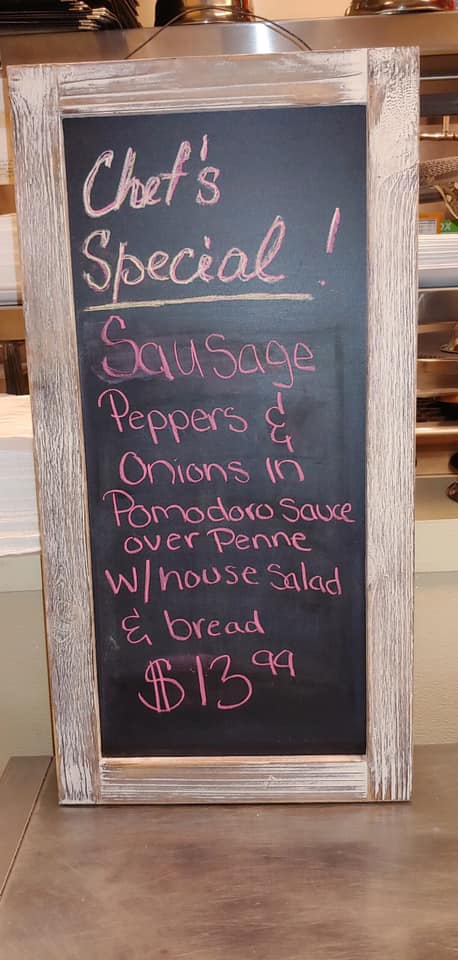 Chef's
Special!
Sausage
Peppers &
Onions in
Pomodoro Sauce
over Penne
W/house Salad
& bread
$13.99